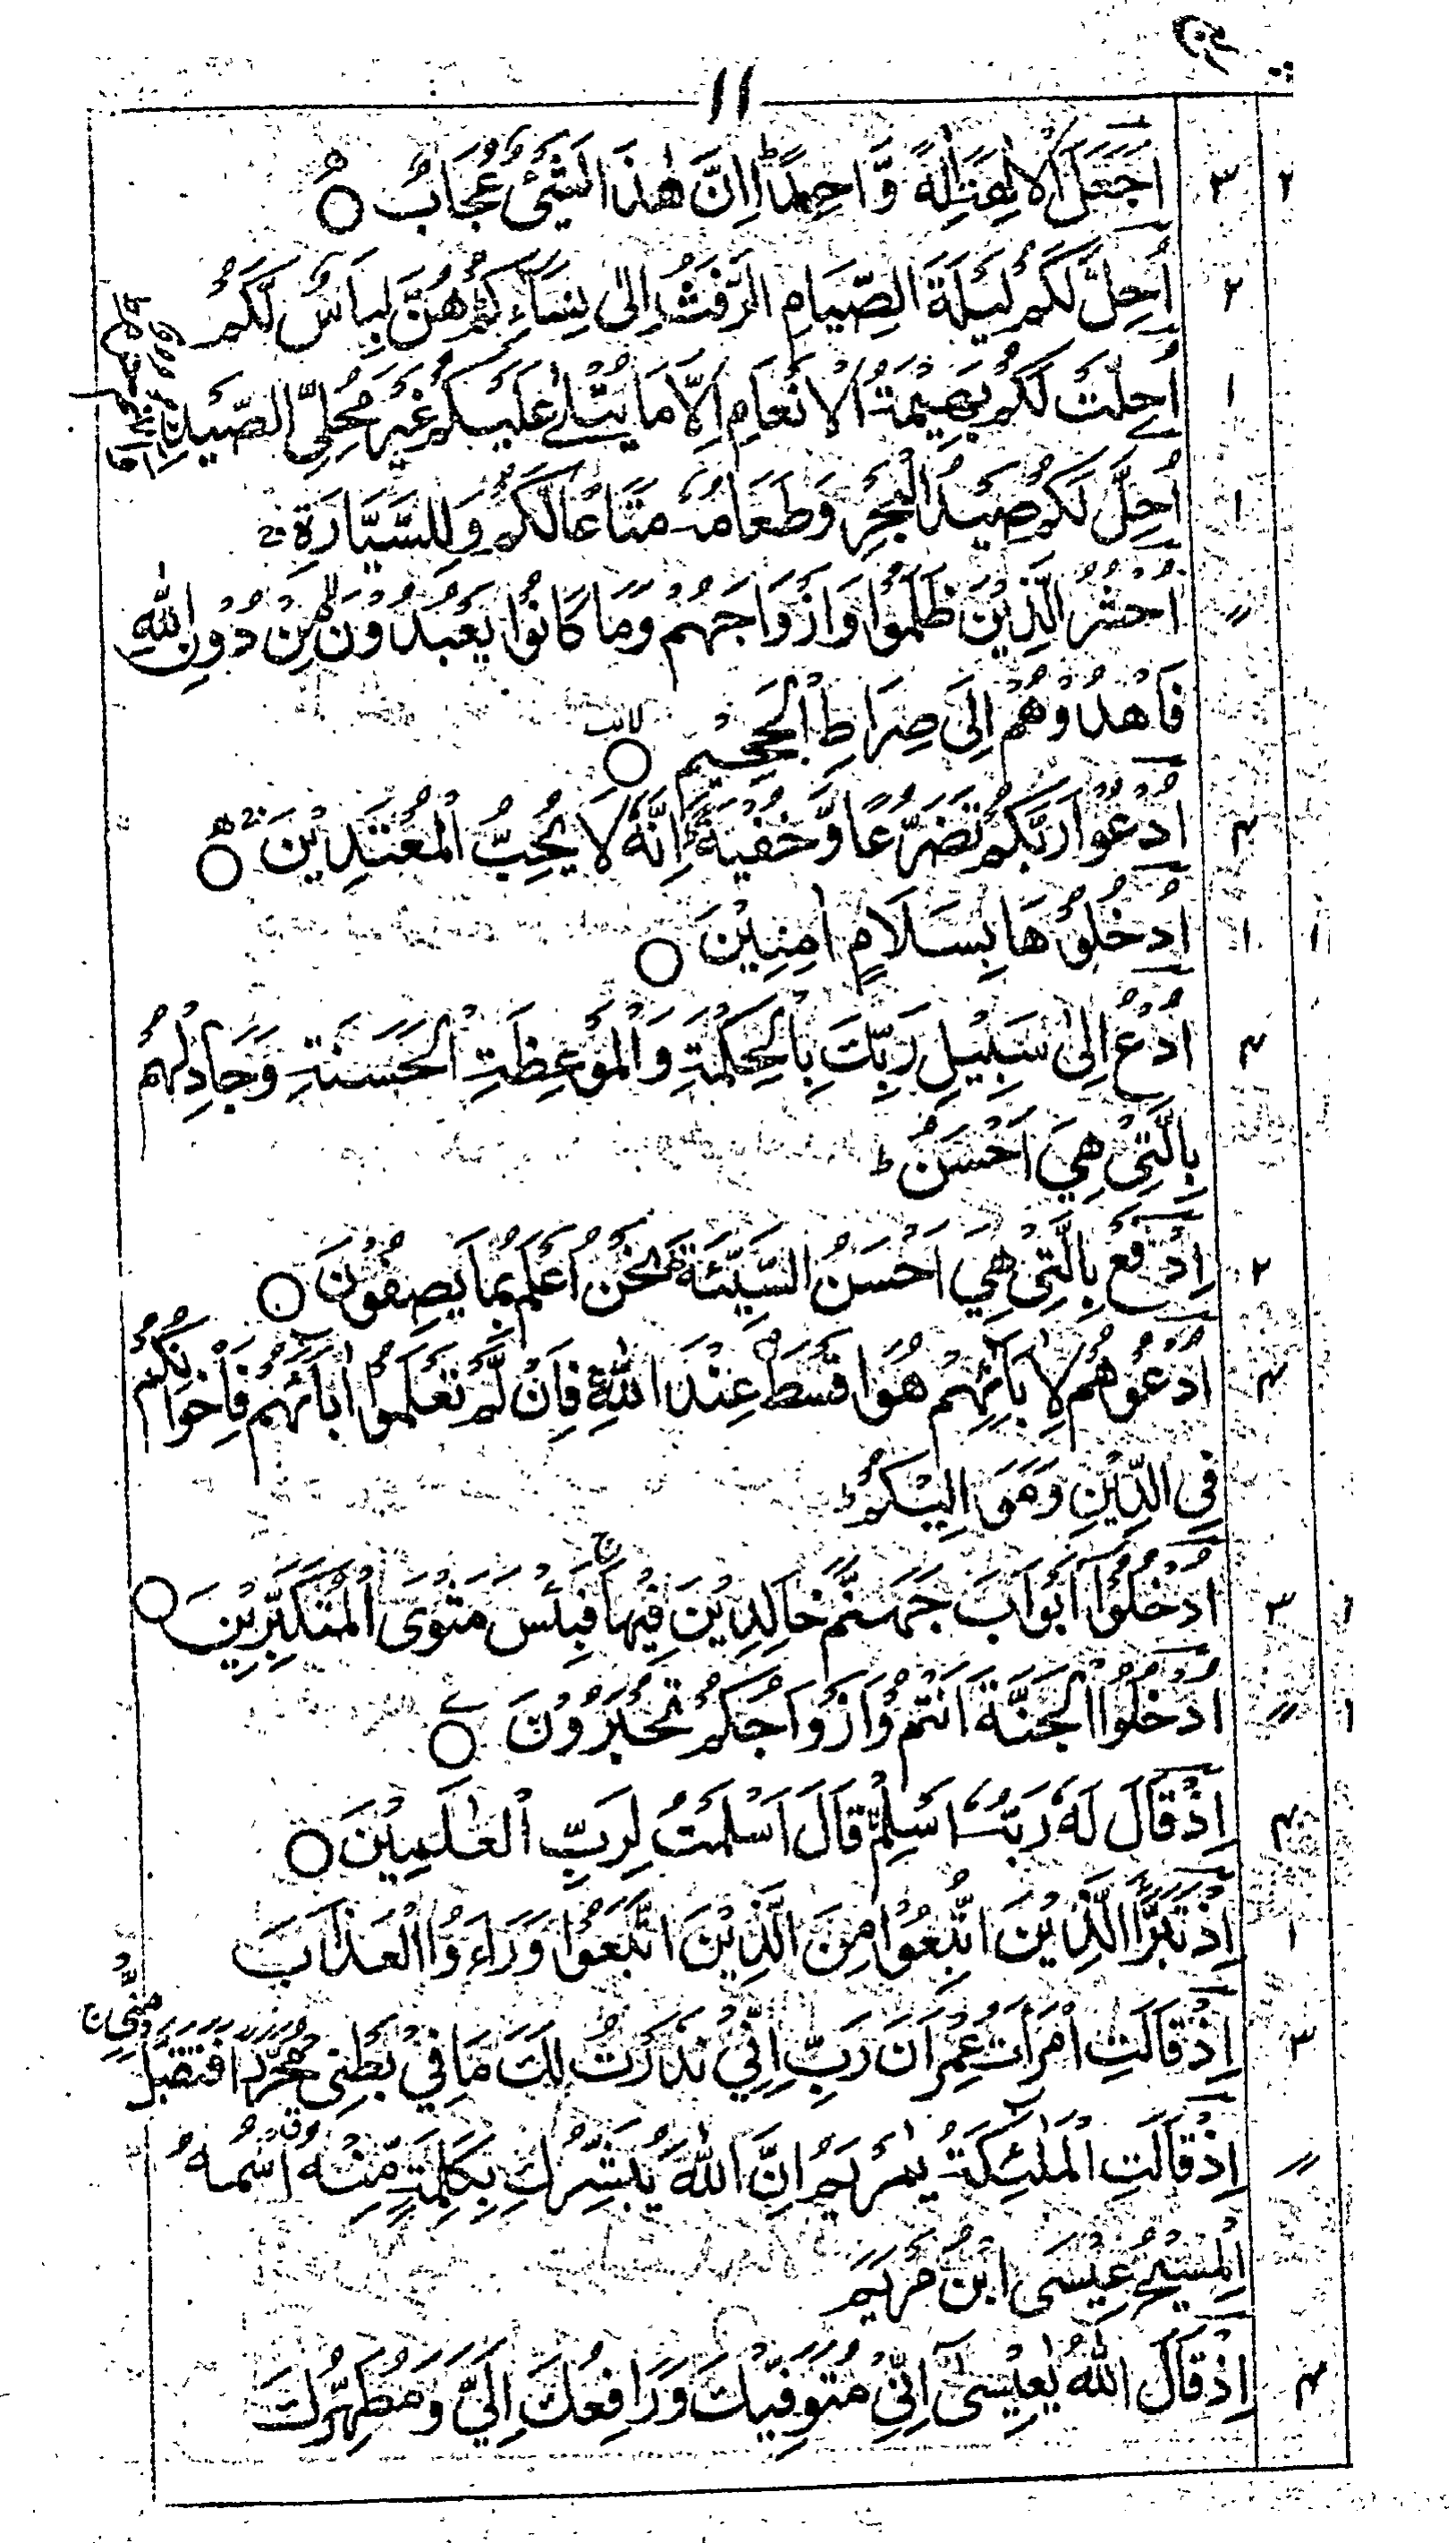 ۱۱
۲ ۳ اَجَعَلَ الْاٰلِهَةَ اِلٰهًا وَّاحِدًا ۖ اِنَّ هٰذَا لَشَیْءٌ عُجَابٌ ○
۲ اُحِلَّ لَكُمْ لَیْلَةَ الصِّیَامِ الرَّفَثُ اِلٰى نِسَآءِكُمْ هُنَّ لِبَاسٌ لَّكُمْ
۱ اُحِلَّتْ لَكُمْ بَهِیْمَةُ الْاَنْعَامِ اِلَّا مَا یُتْلٰى عَلَیْكُمْ غَیْرَ مُحِلِّی الصَّیْدِ
۱ اُحِلَّ لَكُمْ صَیْدُ الْبَحْرِ وَطَعَامُهٗ مَتَاعًا لَّكُمْ وَلِلسَّیَّارَةِ
〃 اُحْشُرُ الَّذِیْنَ ظَلَمُوْا وَاَزْوَاجَهُمْ وَمَا كَانُوْا یَعْبُدُوْنَ مِنْ دُوْنِ اللّٰهِ
فَاهْدُوْهُمْ اِلٰى صِرَاطِ الْجَحِیْمِ ○
۴ اُدْعُوْا رَبَّكُمْ تَضَرُّعًا وَّخُفْیَةً ؕ اِنَّهٗ لَا یُحِبُّ الْمُعْتَدِیْنَ ○
۱ ۱ اُدْخُلُوْهَا بِسَلَامٍ اٰمِنِیْنَ ○
۴ اُدْعُ اِلٰى سَبِیْلِ رَبِّكَ بِالْحِكْمَةِ وَالْمَوْعِظَةِ الْحَسَنَةِ وَجَادِلْهُمْ
بِالَّتِیْ هِیَ اَحْسَنُ ؕ
۲ اِدْفَعْ بِالَّتِیْ هِیَ اَحْسَنُ السَّیِّئَةَ ؕ نَحْنُ اَعْلَمُ بِمَا یَصِفُوْنَ ○
۴ اُدْعُوْهُمْ لِاٰبَآئِهِمْ هُوَ اَقْسَطُ عِنْدَ اللّٰهِ ۚ فَاِنْ لَّمْ تَعْلَمُوْا اٰبَآءَهُمْ فَاِخْوَانُكُمْ
فِی الدِّیْنِ وَمَوَالِیْكُمْ ؕ
۱ ۳ اُدْخُلُوْا اَبْوَابَ جَهَنَّمَ خَالِدِیْنَ فِیْهَا ۚ فَبِئْسَ مَثْوَى الْمُتَكَبِّرِیْنَ ○
۱ 〃 اُدْخُلُوا الْجَنَّةَ اَنْتُمْ وَاَزْوَاجُكُمْ تُحْبَرُوْنَ ○
۴ اِذْ قَالَ لَهٗ رَبُّهٗ اَسْلِمْ قَالَ اَسْلَمْتُ لِرَبِّ الْعٰلَمِیْنَ ○
۱ اِذْ تَبَرَّاَ الَّذِیْنَ اتُّبِعُوْا مِنَ الَّذِیْنَ اتَّبَعُوْا وَرَاَوُا الْعَذَابَ
۳ اِذْ قَالَتِ امْرَاَتُ عِمْرَانَ رَبِّ اِنِّیْ نَذَرْتُ لَكَ مَا فِیْ بَطْنِیْ مُحَرَّرًا فَتَقَبَّلْ مِنِّیْ ۚ
〃 اِذْ قَالَتِ الْمَلٰٓئِكَةُ یٰمَرْیَمُ اِنَّ اللّٰهَ یُبَشِّرُكِ بِكَلِمَةٍ مِّنْهُ اسْمُهُ
الْمَسِیْحُ عِیْسَى ابْنُ مَرْیَمَ
۴ اِذْ قَالَ اللّٰهُ یٰعِیْسٰۤى اِنِّیْ مُتَوَفِّیْكَ وَرَافِعُكَ اِلَیَّ وَمُطَهِّرُكَ